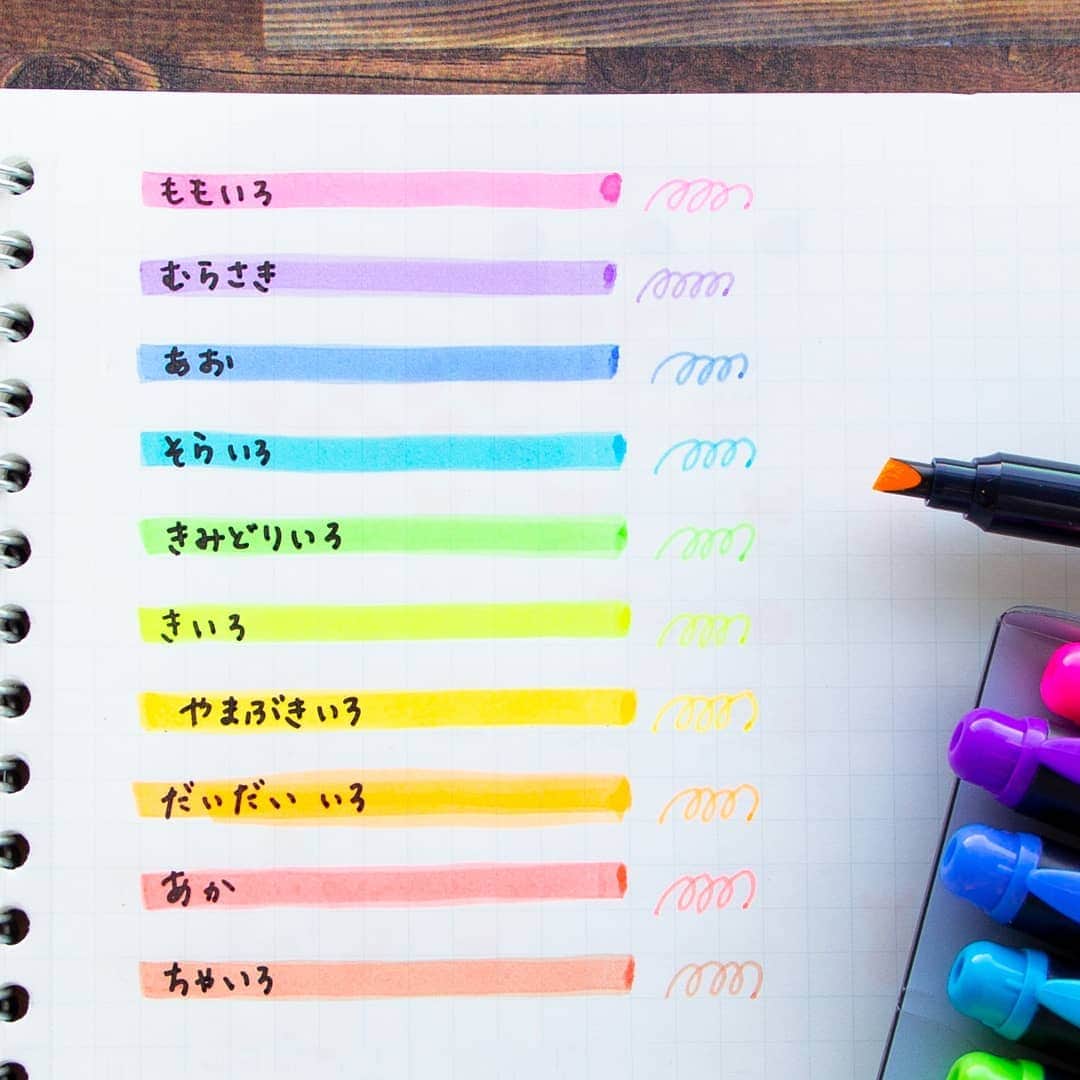 ももいろ
むらさき
あお
そらいろ
きみどりいろ
きいろ
やまぶきいろ
だいだい いろ
あか
ちゃいろ